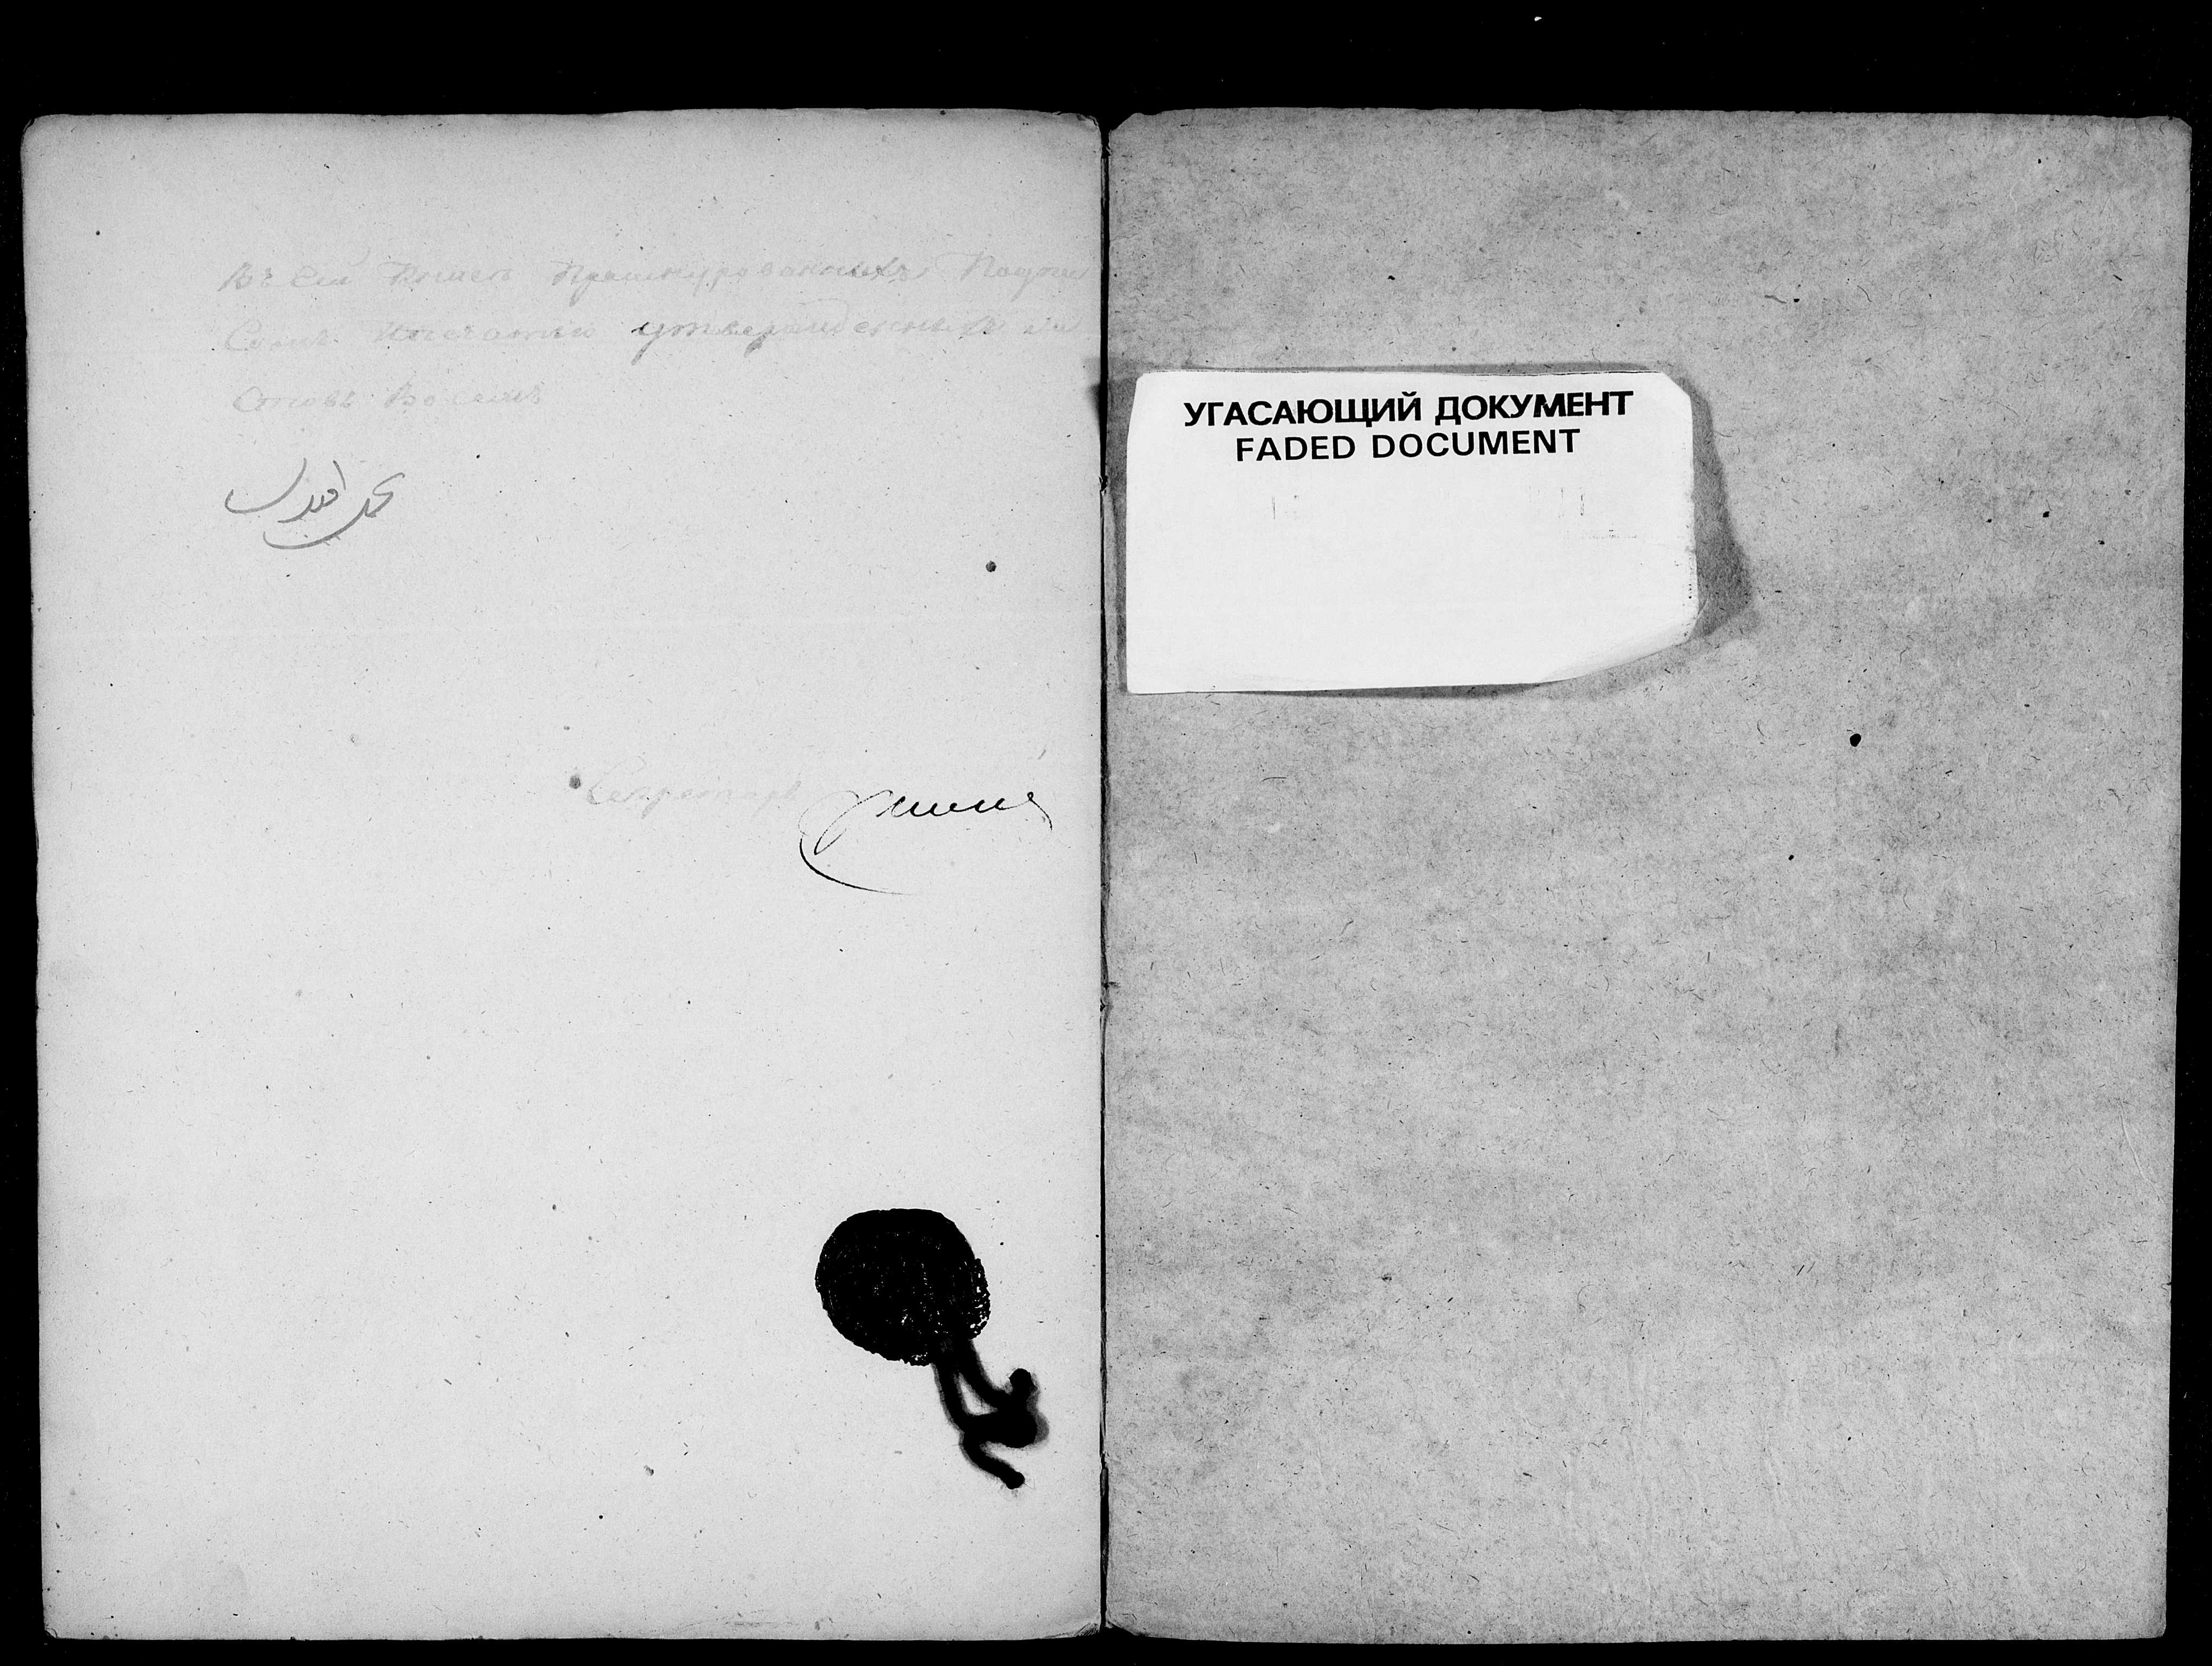 Въ сей книге прошнурованныхъ Подпи
Сомъ и печатью утвержденныхъ ли
стовъ Восемь
Секретарь
УГАСАЮЩИЙ ДОКУМЕНТ
FADED DOCUMENT